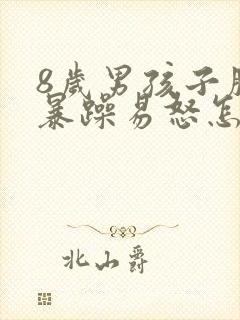 8歲男孩子
暴躁易怒怎
北山爵